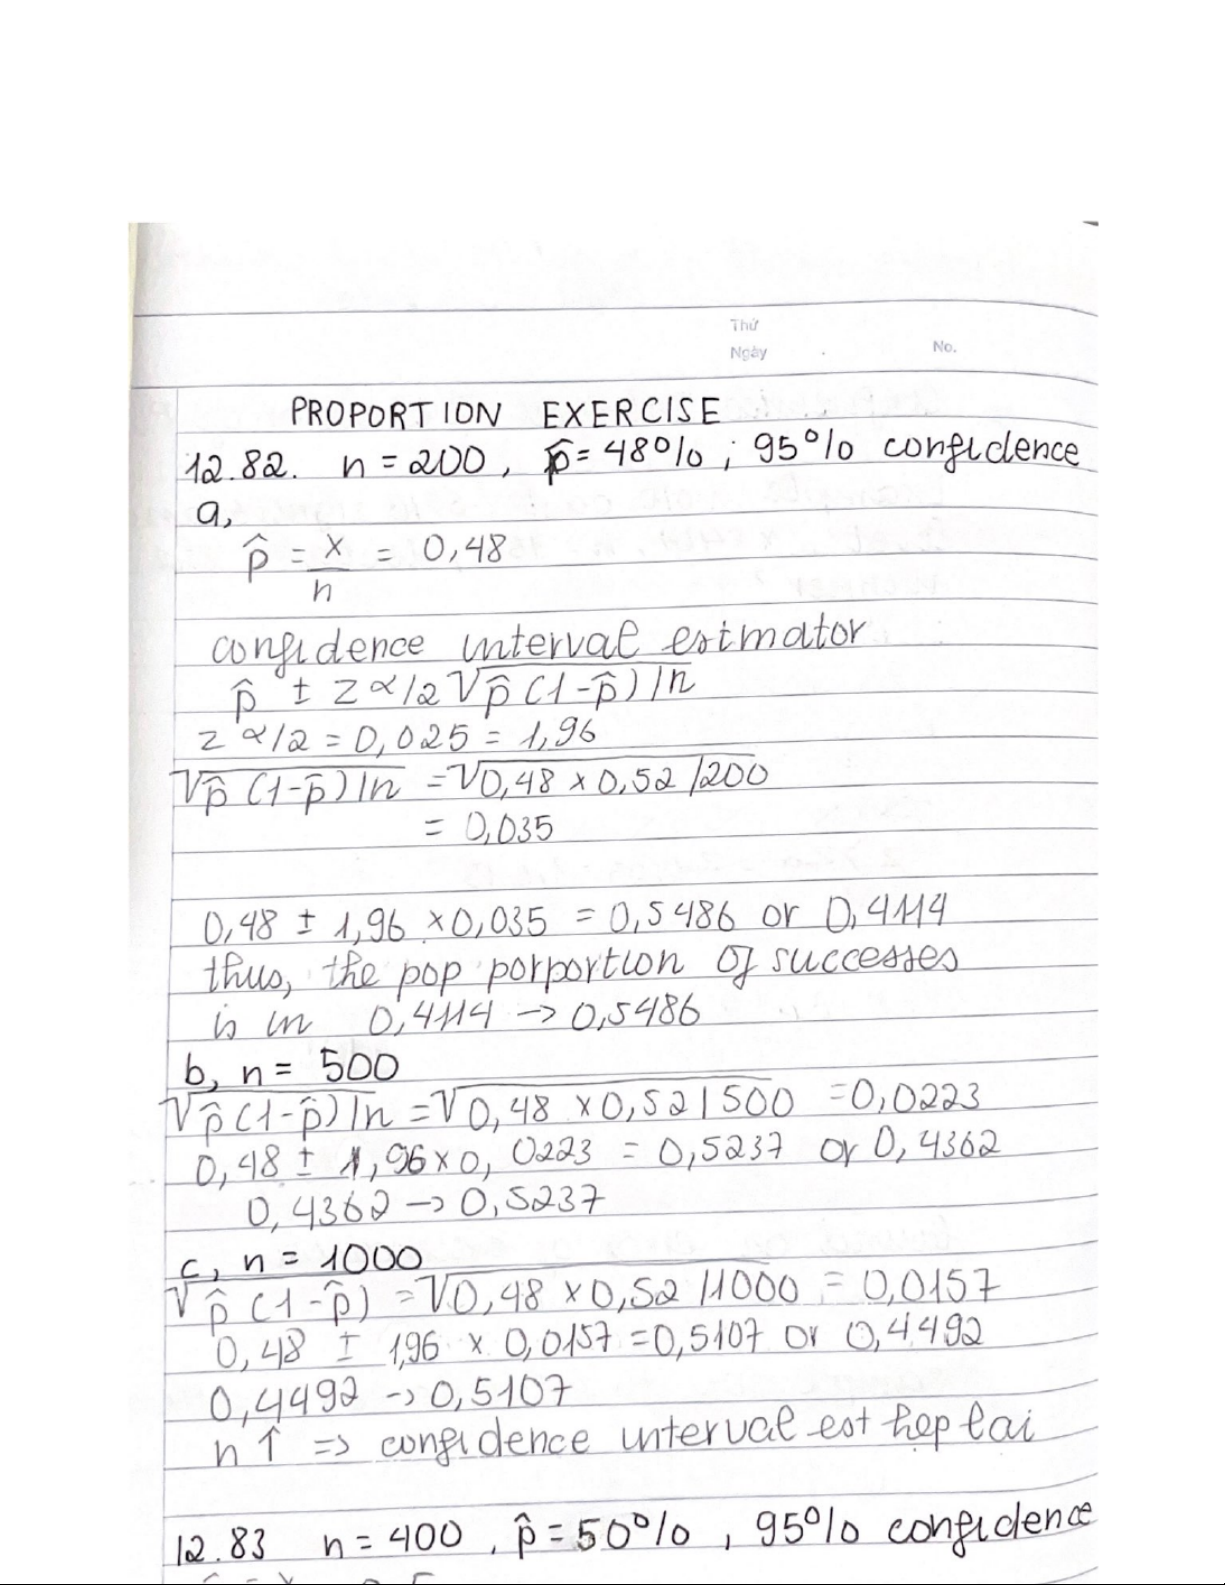 Thứ
Ngày
No.
PROPORTION EXERCISE
12.82. n = 200, p̂ = 48%; 95% confidence
a,
p̂ = x/n = 0,48
confidence interval estimator
p̂ ± z α/2 √p̂(1-p̂)/n
z α/2 = 0,025 = 1,96
√p̂(1-p̂)/n = √0,48 × 0,52/200
= 0,035
0,48 ± 1,96 × 0,035 = 0,5486 or 0,4114
thus, the pop porportion of successes
is in 0,4114 -> 0,5486
b, n = 500
√p̂(1-p̂)/n = √0,48 × 0,52/500 = 0,0223
0,48 ± 1,96 × 0,0223 = 0,5237 or 0,4362
0,4362 -> 0,5237
c, n = 1000
√p̂(1-p̂) = √0,48 × 0,52/1000 = 0,0157
0,48 ± 1,96 × 0,0157 = 0,5107 or 0,4492
0,4492 -> 0,5107
n ↑ => confidence interval est hẹp lại
12.83 n = 400, p̂ = 50%, 95% confidence